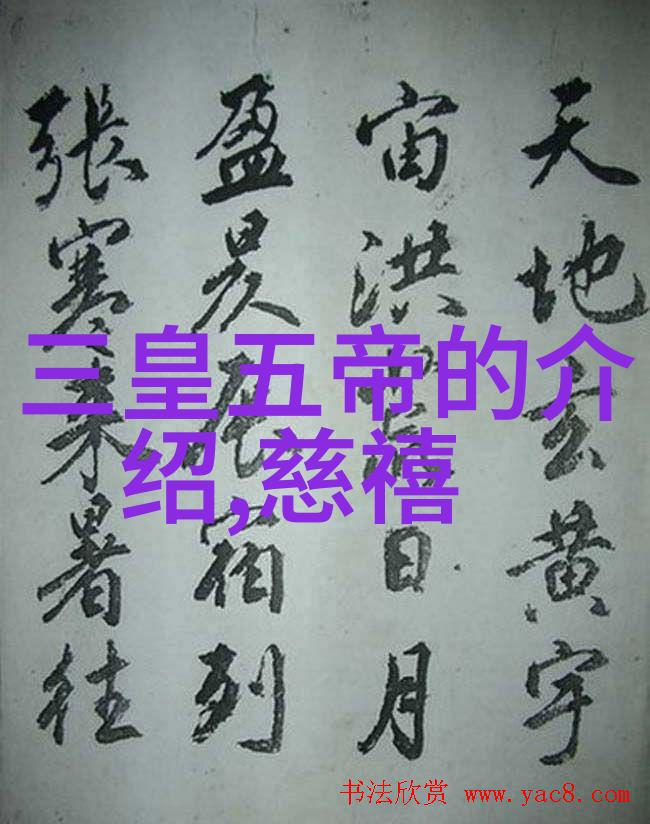 天地玄黄宇
宙洪荒日月
盈昃辰宿列
張寒来暑往
三皇五帝的介
绍,慈禧
书法欣赏 www.yac8.com